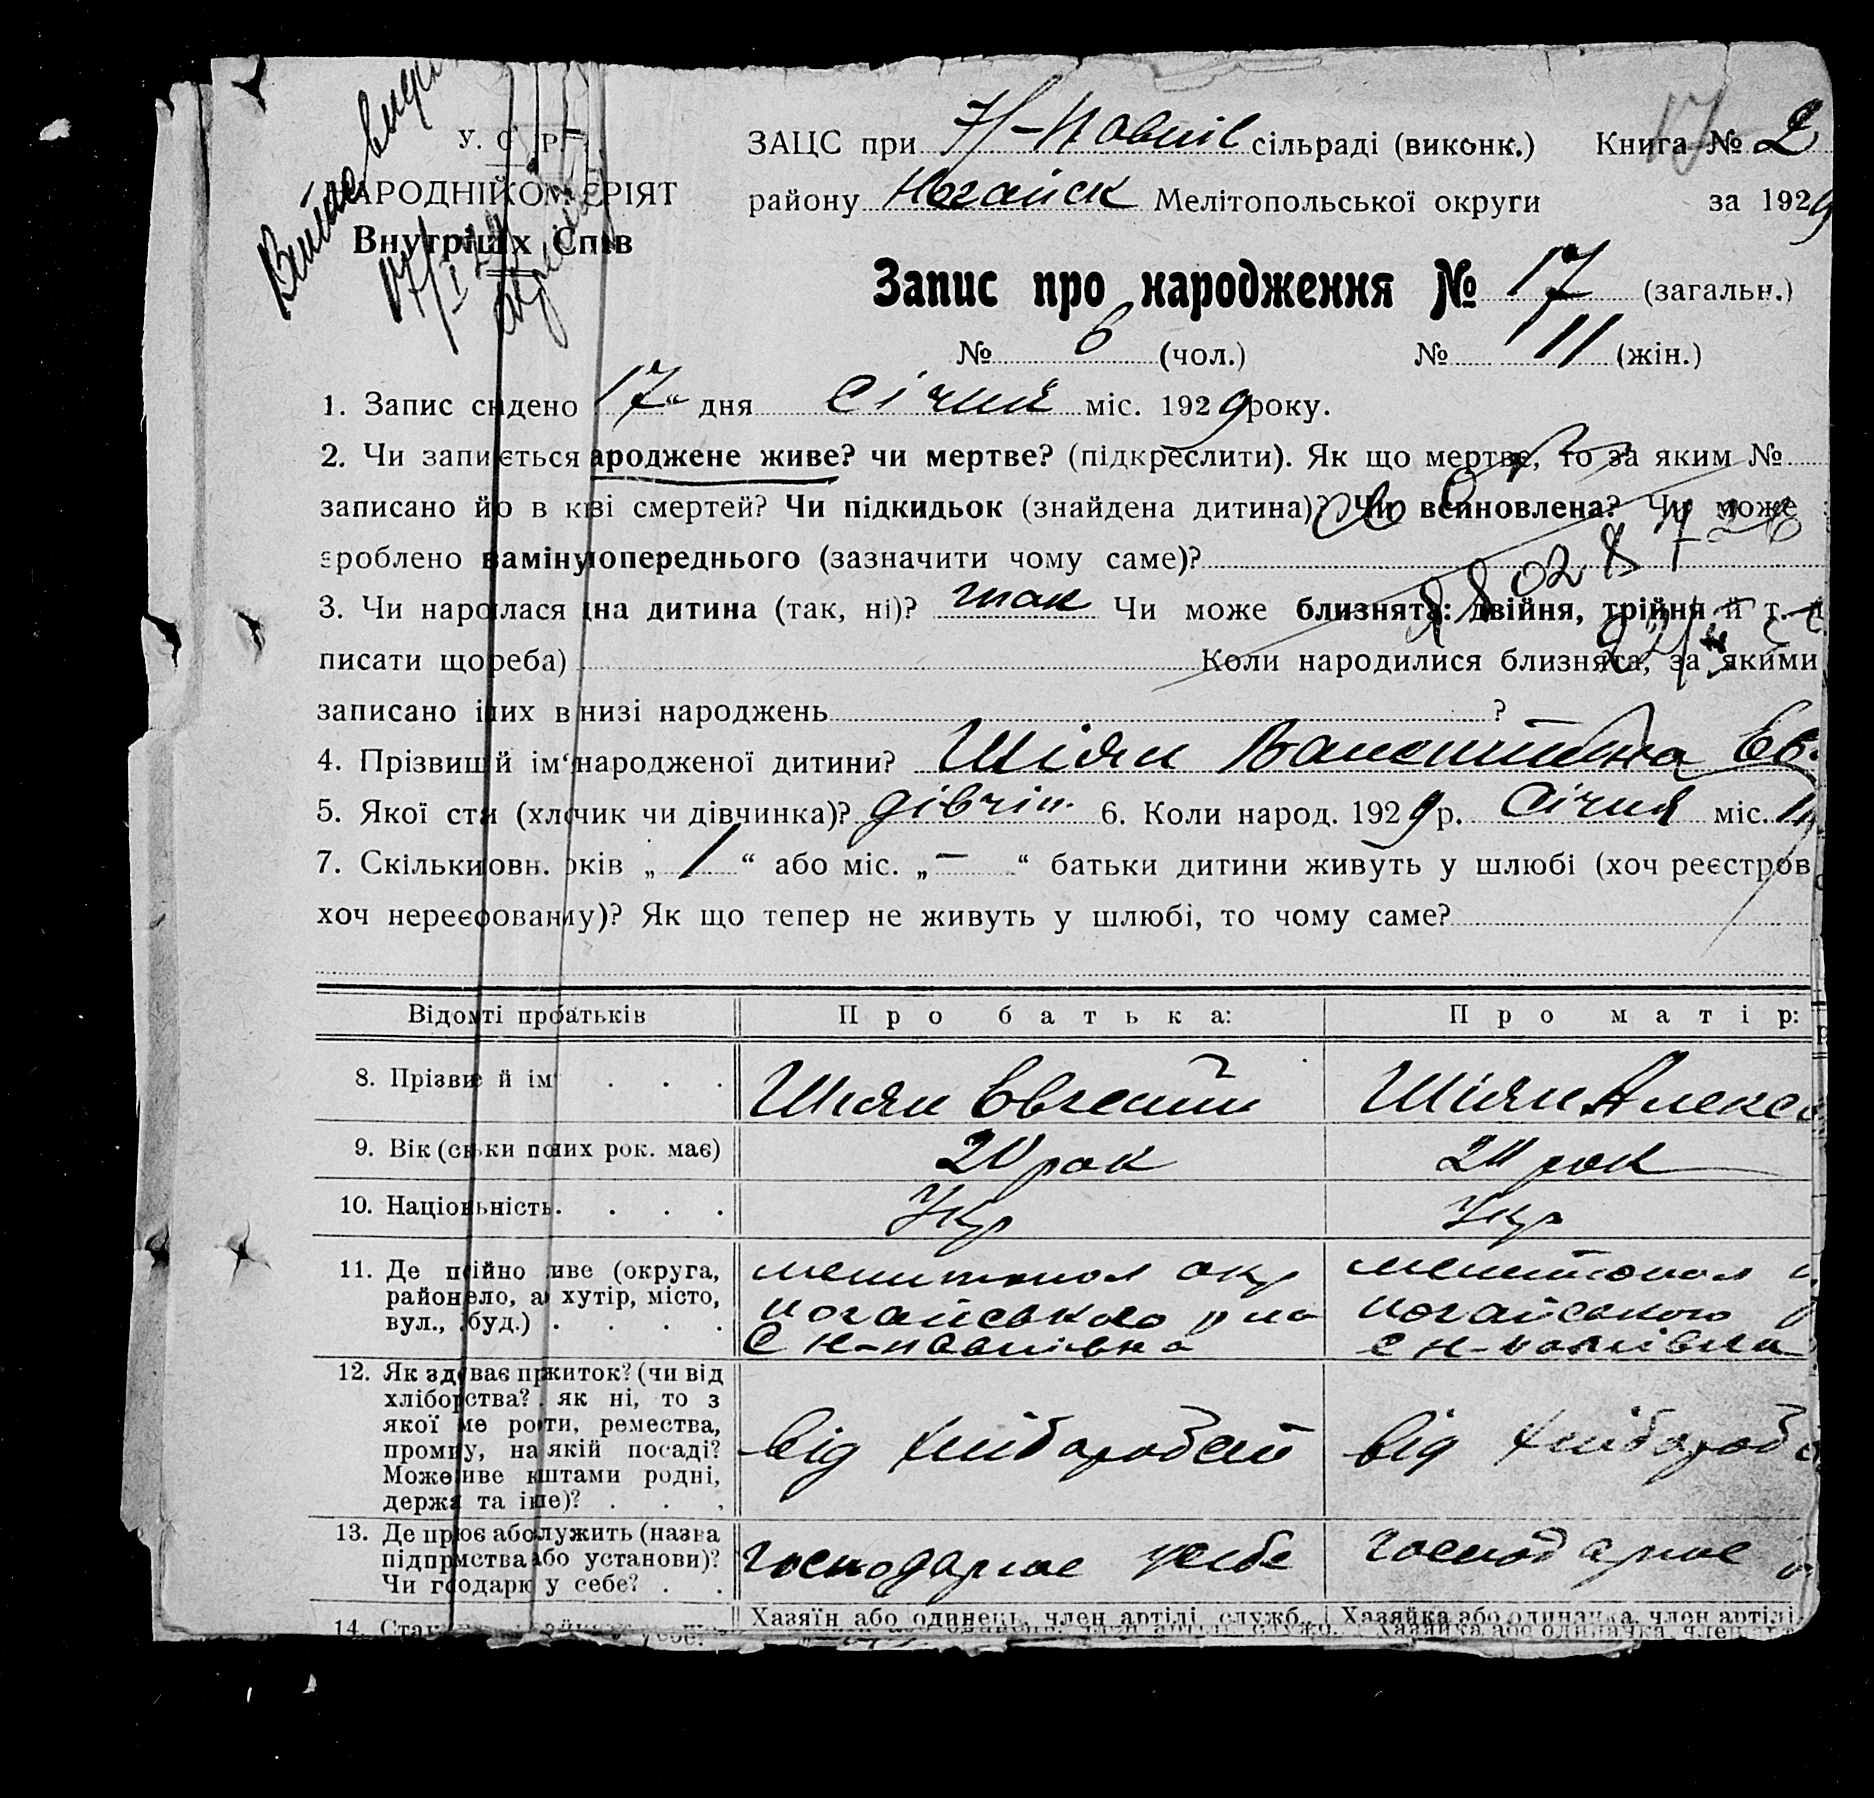 У. С. Р. Р.
НАРОДНІЙ КОМІСЕРІЯТ
Внутрішх Спів
17/I 29
ЗАЦС при сільраді (виконк.) Книга № 2
району Ногайск Мелітопольської округи за 1929
17
Запис про народження № 17 (загальн.)
№ 6 (чол.) № 11 (жін.)
1. Запис сидено 17 “ дня Січня міс. 1929 року.
2. Чи запиється ароджене живе? чи мертве? (підкреслити). Як що мертве, то за яким №
записано йо в кзі смертей? Чи підкидьок (знайдена дитина)? Чи всиновлена? Чи може
зроблено замін опереднього (зазначити чому саме)?
3. Чи народлася дна дитина (так, ні)? так Чи може близнята: двійня, трійня й т. д
писати що реба) Коли народилися близнята, за якими
записано інших в низі народжень ?
4. Прізвищ й ім‘ народженої дитини? Шіян Валентина Ев.
5. Якої сти (хлочик чи дівчинка)? дівчин. 6. Коли народ. 1929 р. Січня міс. 11
7. Скільки овн. оків „ 1 “ або міс. „ — “ батьки дитини живуть у шлюбі (хоч реєстров
хоч нереєованому)? Як що тепер не живуть у шлюбі, то чому саме?
Відомті про батьків Про батька: Про матір:
8. Прізви й ім‘ . . . Шіян Евгений Шіян Алекса
9. Вік (скільки повних рок. має) 20 рок 20 рок
10. Націоньність . . . . Укр Укр
11. Де пійно живе (округа, мелитопол окр мелитопол
район, село, а хутір, місто, ногайського р на ногайського
вул., буд.) . . . . с Н-павлівка с Н-павлівка
12. Як здуває пржиток? (чи від
хліборства? як ні, то з
якої ме роти, ремества, від хліборобст від хліборобс
промиу, на якій посаді?
Може живе коштами родні,
держа та інше)? . . .
13. Де прює або служить (назва
підпримства або установи)? господарює у себе господарює
Чи гсодарю у себе? . .
14. Стан Хазяїн або одинець, член артілі, служб., Хазяйка або одиначка, член артілі